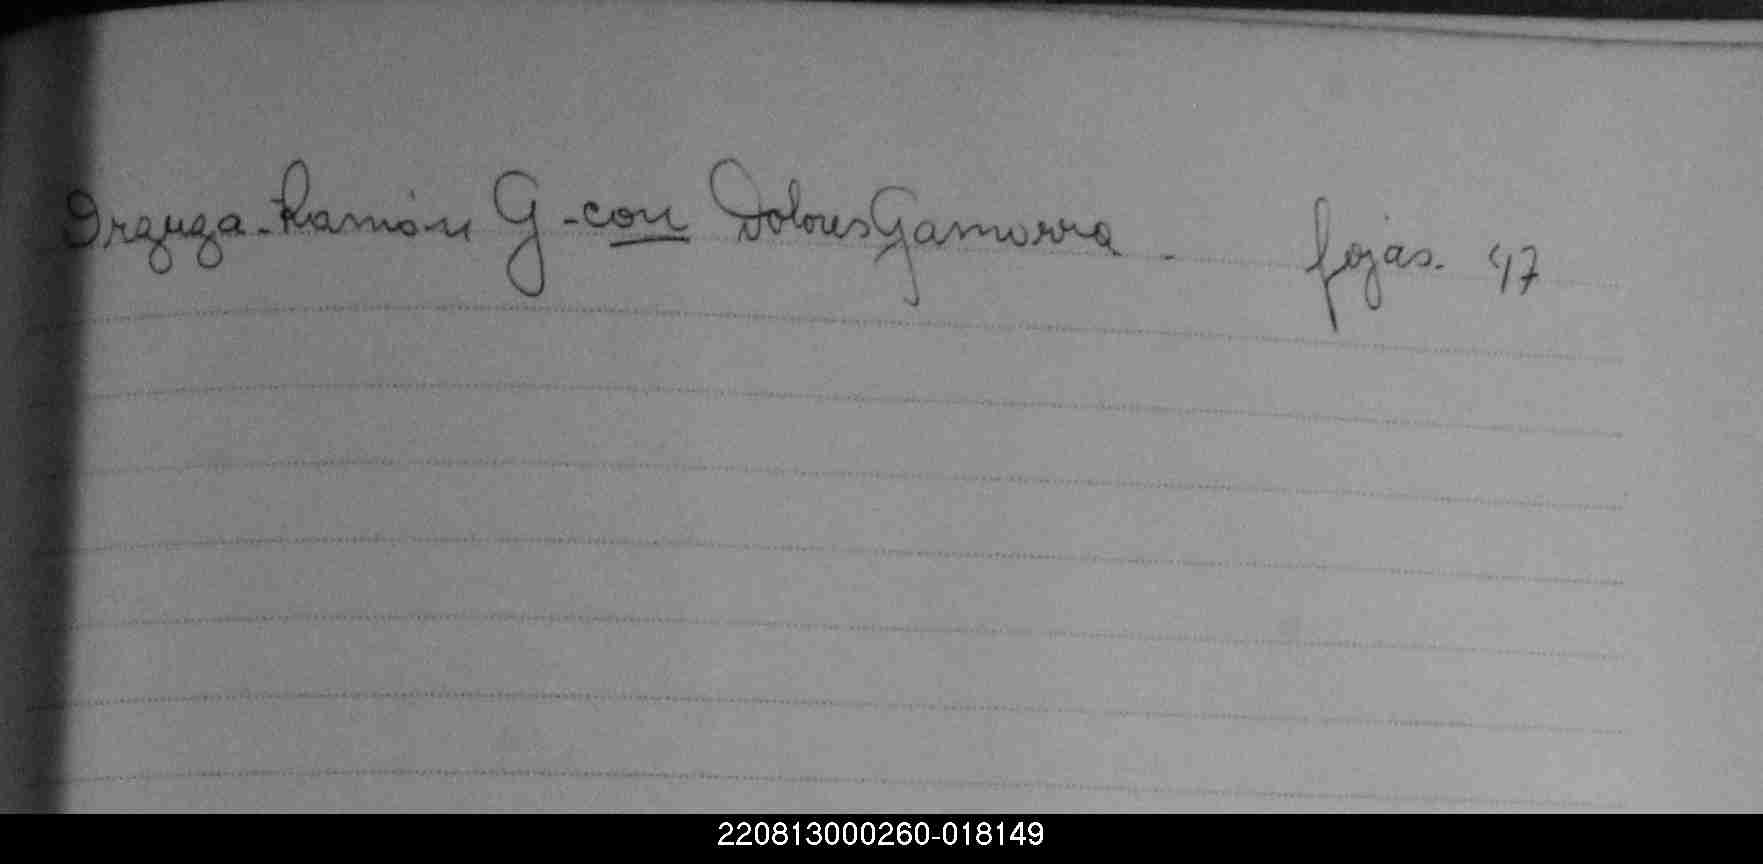 Irzuza - Ramón G - con Dolores Gamorra - fojas. 47
220813000260-018149